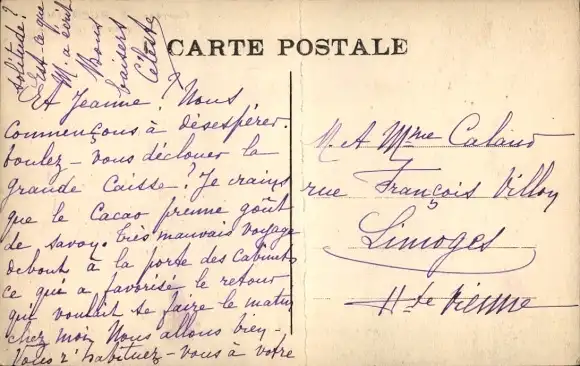 CARTE POSTALE
Et Jeanne? Nous
commençons à désespérer.
voulez-vous déclouer la
grande Caisse? Je crains
que le Cacao prenne goût
de savon. Très mauvais voyage
debout à la porte des Cabinets
ce qui a favorisé le retour
qui voulait se faire le matin
chez moi. Nous allons bien.
Vous habituez-vous à votre
solitude?
Est-ce que
M. a écrit
Bons
baisers
M. et Mme
rue François Villon
Limoges
Hte Vienne